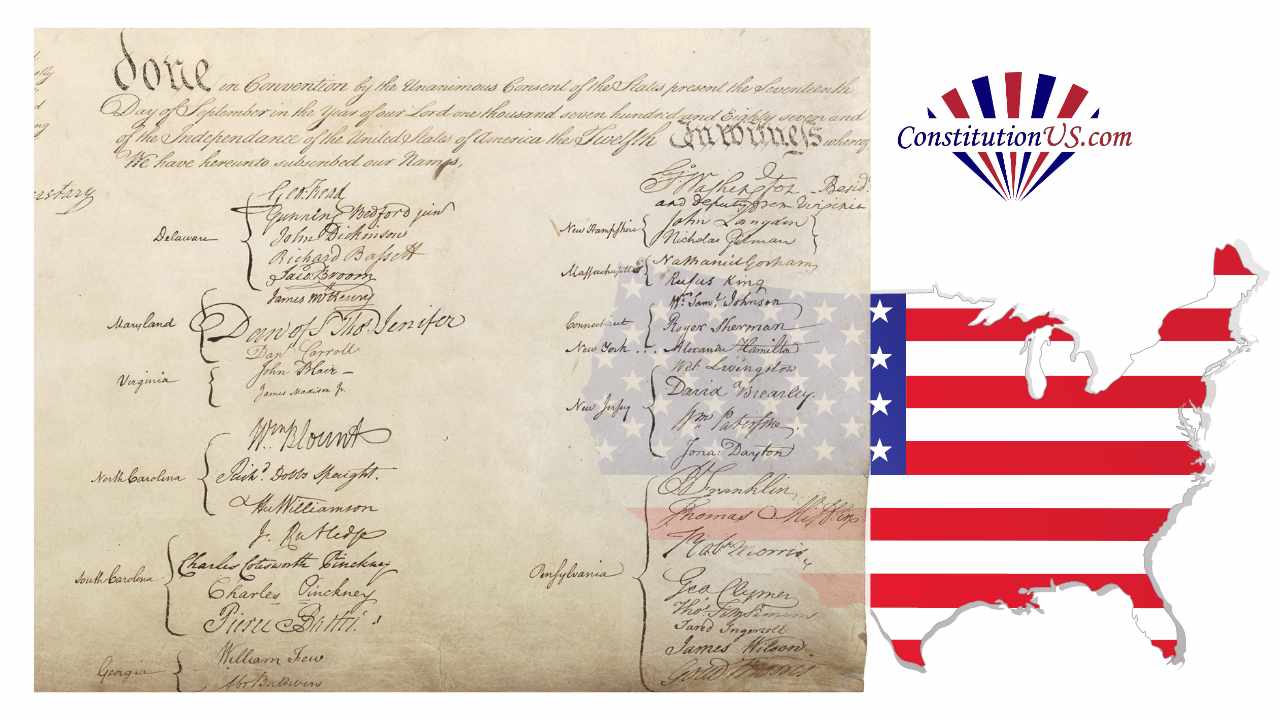 done in Convention by the Unanimous Consent of the States present the Seventeenth
Day of September in the Year of our Lord one thousand seven hundred and Eighty seven and
of the Independance of the United States of America the Twelfth In Witness whereof
We have hereunto subscribed our Names,
Delaware
Geo: Read
Gunning Bedford jun
John Dickinson
Richard Bassett
Jaco: Broom
Maryland
James McHenry
Dan of St Thos. Jenifer
Danl Carroll
Virginia
John Blair –
James Madison Jr.
North Carolina
Wm Blount
Richd. Dobbs Spaight.
Hu Williamson
South Carolina
J. Rutledge
Charles Cotesworth Pinckney
Charles Pinckney
Pierce Butler.
Georgia
William Few
Abr Baldwin
Go. Washington – Presidt.
and deputy from Virginia
New Hampshire
John Langdon
Nicholas Gilman
Massachusetts
Nathaniel Gorham
Rufus King
Connecticut
Wm. Saml. Johnson
Roger Sherman
New York . . . Alexander Hamilton
New Jersey
Wil: Livingston
David Brearley.
Wm. Paterson.
Jona: Dayton
Pensylvania
B Franklin
Thomas Mifflin
Robt Morris
Geo. Clymer
Thos. FitzSimons
Jared Ingersoll
James Wilson.
Gouv Morris
ConstitutionUS.com